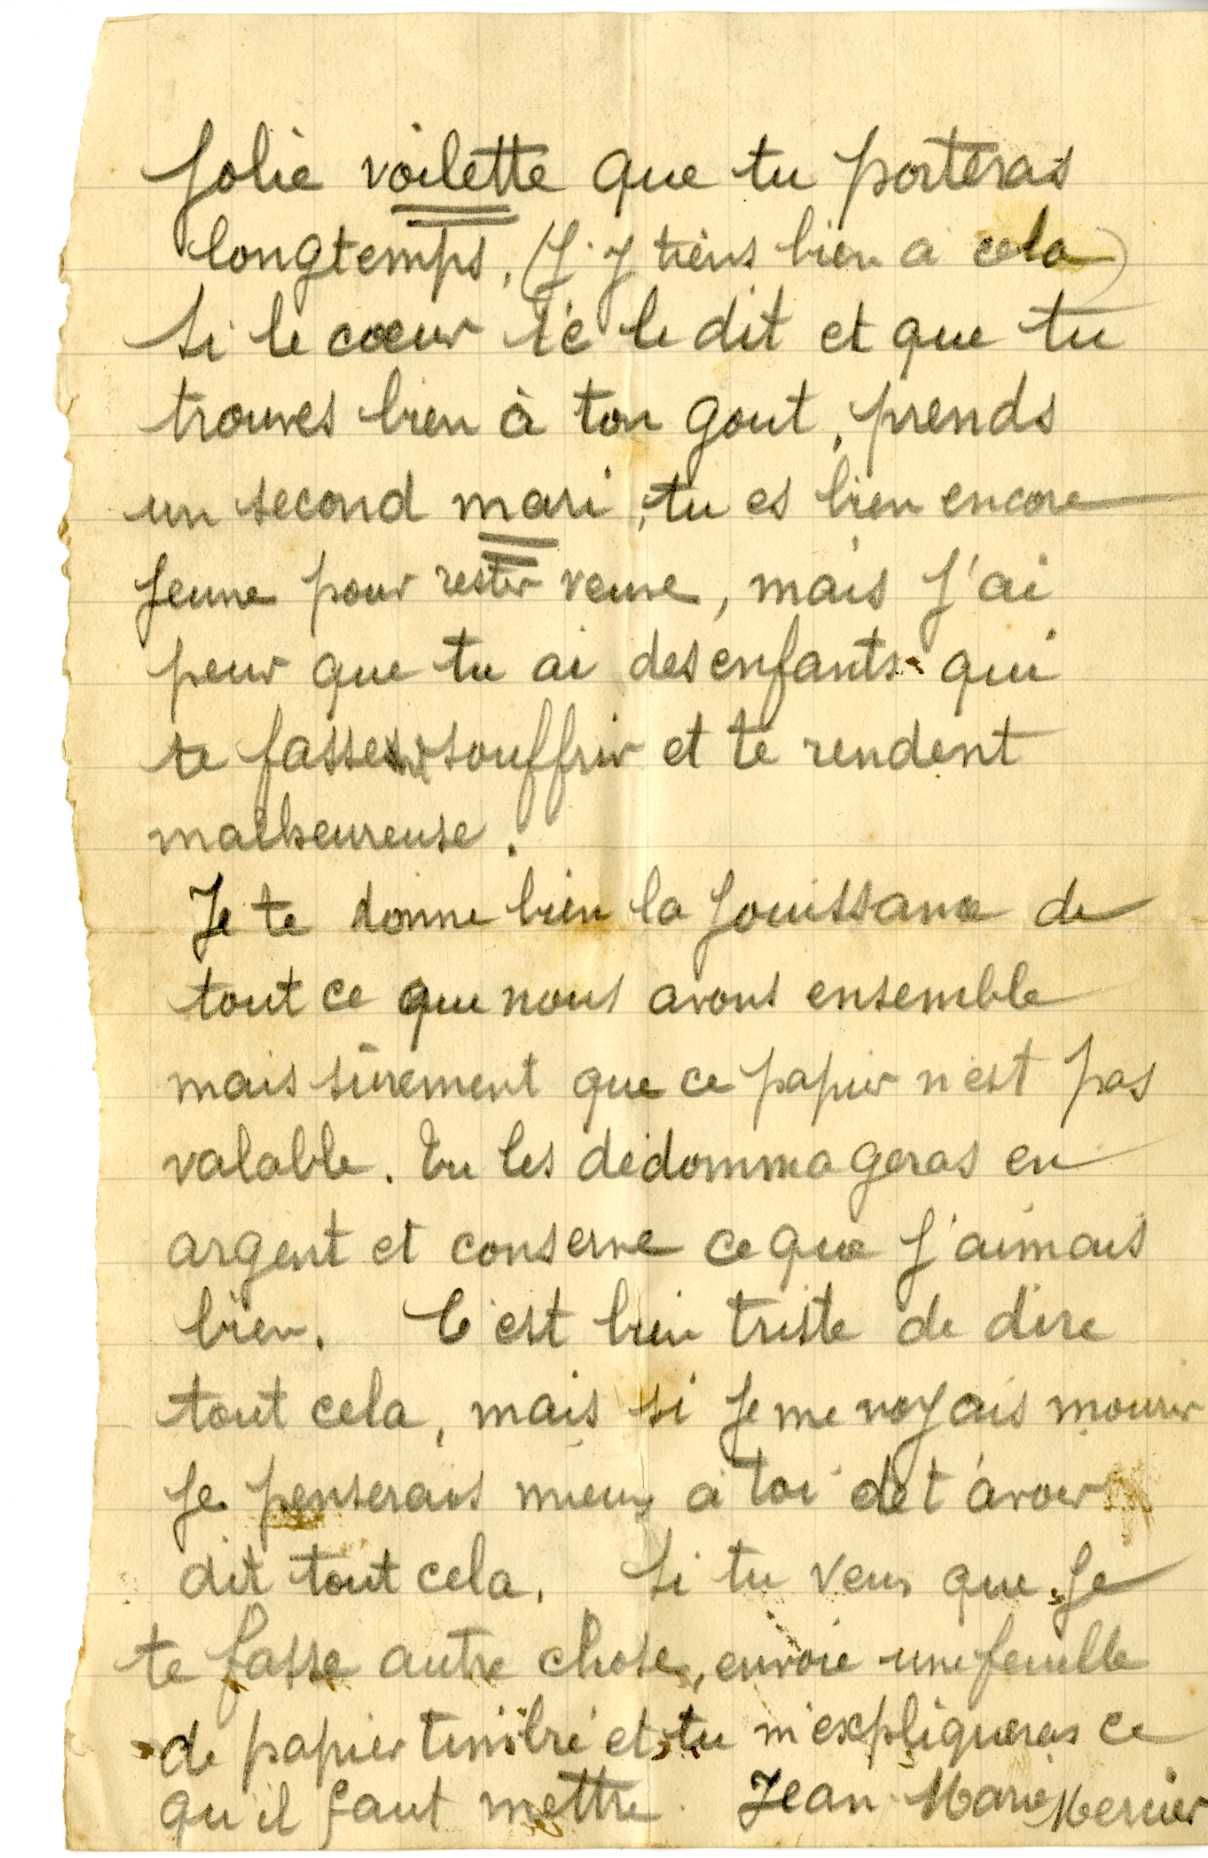 Jolie voilette que tu porteras
longtemps, (J'y tiens bien a cela)
Si le cœur te le dit et que tu
trouves bien à ton gout, prends
un second mari, tu es bien encore
jeune pour rester veuve, mais j'ai
peur que tu ai des enfants qui
te fassent souffrir et te rendent
malheureuse.
Je te donne bien la jouissance de
tout ce que nous avons ensemble
mais sûrement que ce papier n'est pas
valable. Tu les dédommageras en
argent et conserve ce que j'aimais
bien. C'est bien triste de dire
tout cela, mais si je me voyais mourir
je penserais mieux a toi de t'avoir
dit tout cela. Si tu veux que je
te fasse autre chose, envoie une feuille
de papier timbré et tu m'expliqueras ce
qu'il faut mettre. Jean Marie Mercier